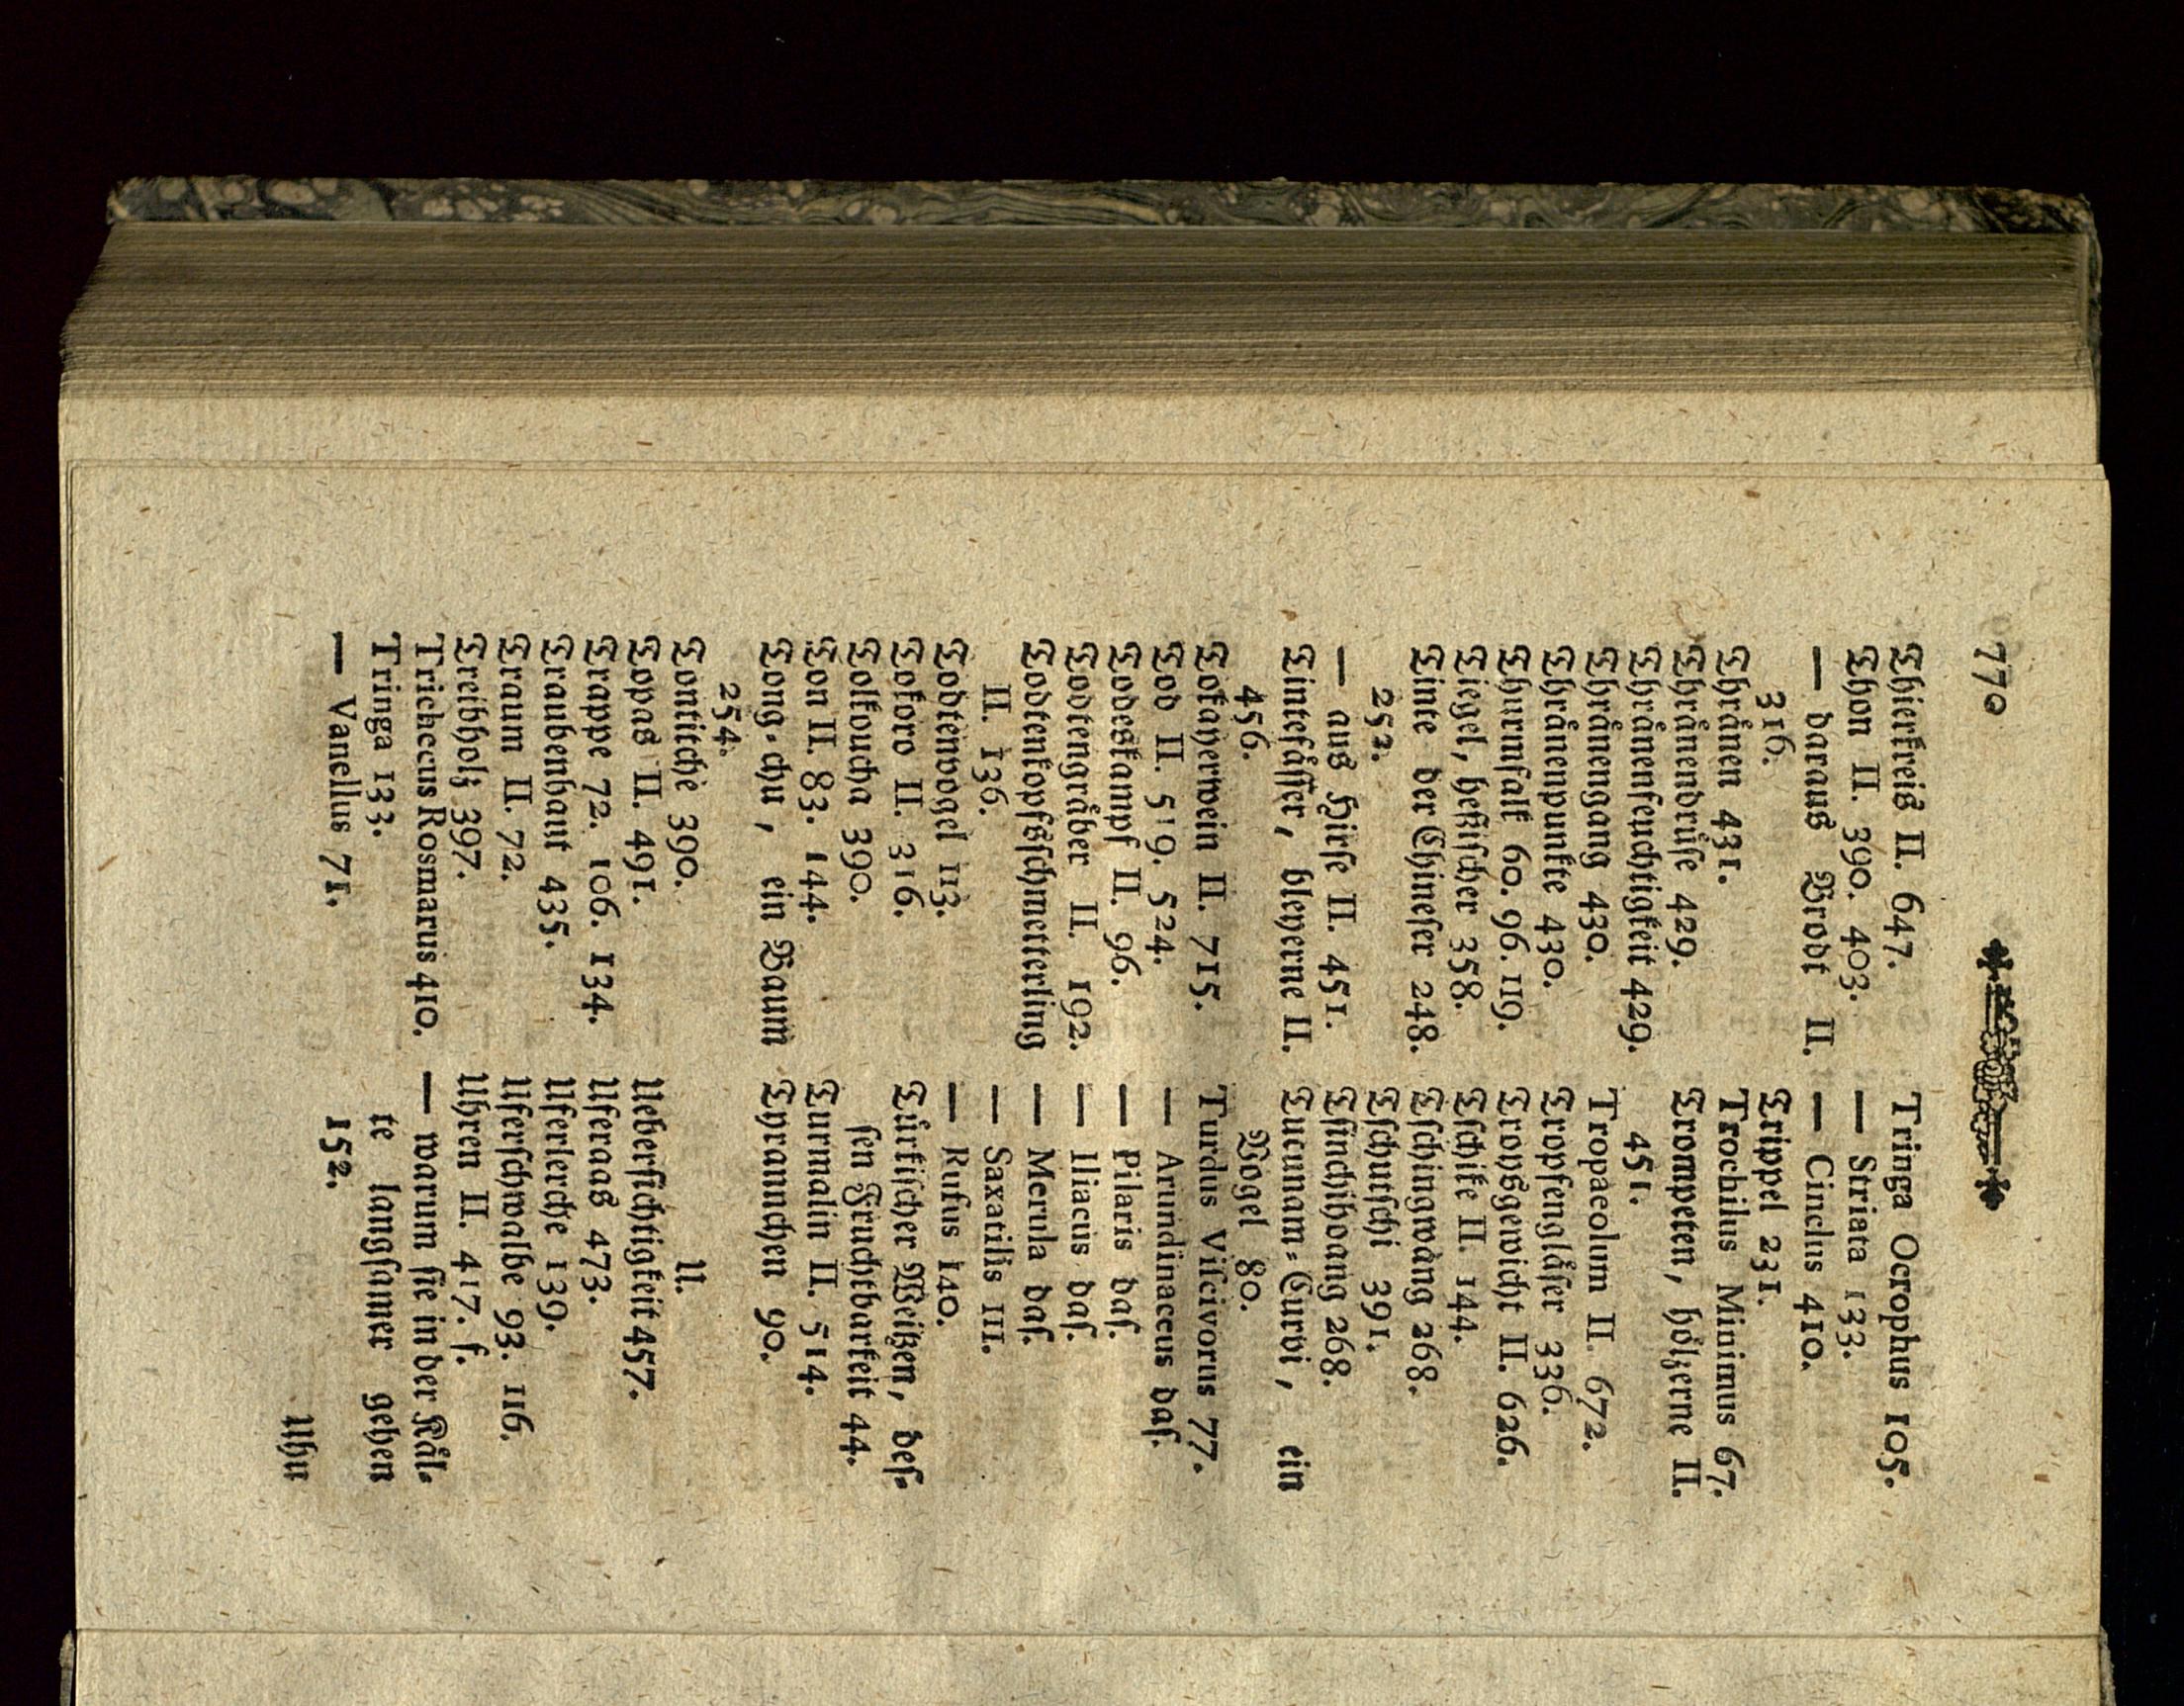 770
Thierkreis II. 647.
Thon II. 390. 403.
— daraus Brodt II.
316.
Thränen 431.
Thränendrüse 429.
Thränenfeuchtigkeit 429.
Thränengang 430.
Thränenpunkte 430.
Thurmfalk 60. 96. 119.
Tiegel, heßischer 358.
Tinte der Chineser 248.
252.
— aus Hirse II. 451.
Tintefässer, bleyerne II.
456.
Tokayerwein II. 715.
Tod II. 519. 524.
Todeskampf II. 96.
Todtengräber II. 192.
Todtenkopfsschmetterling
II. 136.
Todtenvogel 113.
Tokoro II. 316.
Tolkoucha 390.
Ton II. 83. 144.
Tong-chu, ein Baum
254.
Tontitche 390.
Topas II. 491.
Trappe 72. 106. 134.
Traubenhaut 435.
Traum II. 72.
Treibholz 397.
Trichecus Rosmarus 410.
Tringa 133.
— Vanellus 71.
Tringa Ocrophus 105.
— Striata 133.
— Cinclus 410.
Trippel 231.
Trochilus Minimus 67.
Trompeten, hölzerne II.
451.
Tropaeolum II. 672.
Tropfengläser 336.
Troysgewicht II. 626.
Tschike II. 144.
Tschingwang 268.
Tschutschi 391.
Tsinchihoang 268.
Tucunam-Curvi, ein
Vogel 80.
Turdus Viſcivorus 77.
— Arundinaceus daſ.
— Pilaris daſ.
— Iliacus daſ.
— Merula daſ.
— Saxatilis 111.
— Rufus 140.
Türkiſcher Weitzen, deſ-
ſen Fruchtbarkeit 44.
Turmalin II. 514.
Tyrannchen 90.
U.
Ueberſichtigkeit 457.
Uferaas 473.
Uferlerche 139.
Uferſchwalbe 93. 116.
Uhren II. 417. f.
— warum ſie in der Käl-
te langſamer gehen
152.
Uhr